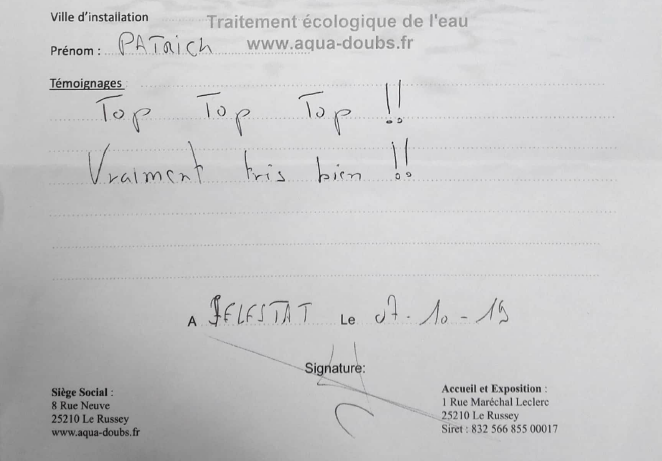 Ville d'installation
Traitement écologique de l'eau
Prénom : PATRICH
www.aqua-doubs.fr
Témoignages
Top Top Top !!
Vraiment tris bien !!
A SELESTAT Le 07-10-19
Signature:
Siège Social :
8 Rue Neuve
25210 Le Russey
www.aqua-doubs.fr
Accueil et Exposition :
1 Rue Maréchal Leclerc
25210 Le Russey
Siret : 832 566 855 00017